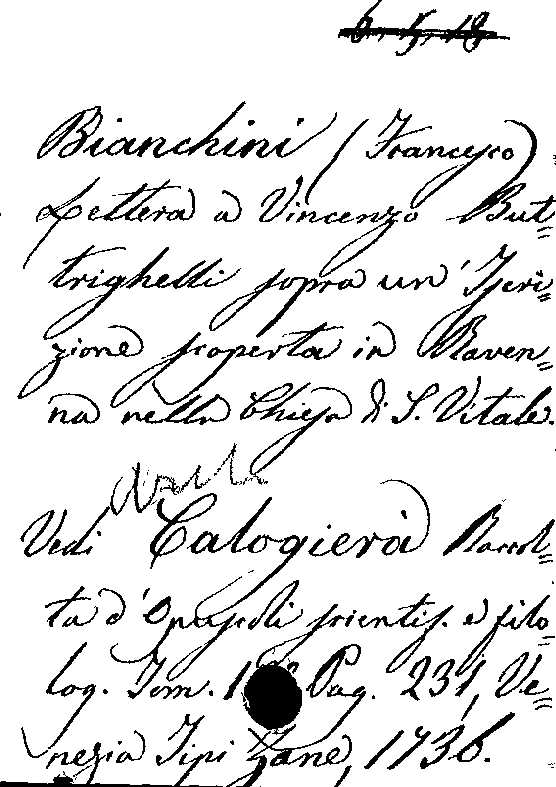 6. 5. 18
Bianchini (Francesco)
Lettera a Vincenzo But=
trighelli sopra un' Iscri=
zione scoperta in Raven=
na nella Chiesa di S. Vitale.
Vedi Calogierà Raccol=
ta d'Opuscoli scientif. e filo=
log. Tom. Pag. 231, Ve=
nezia Tipi Zane, 1736.